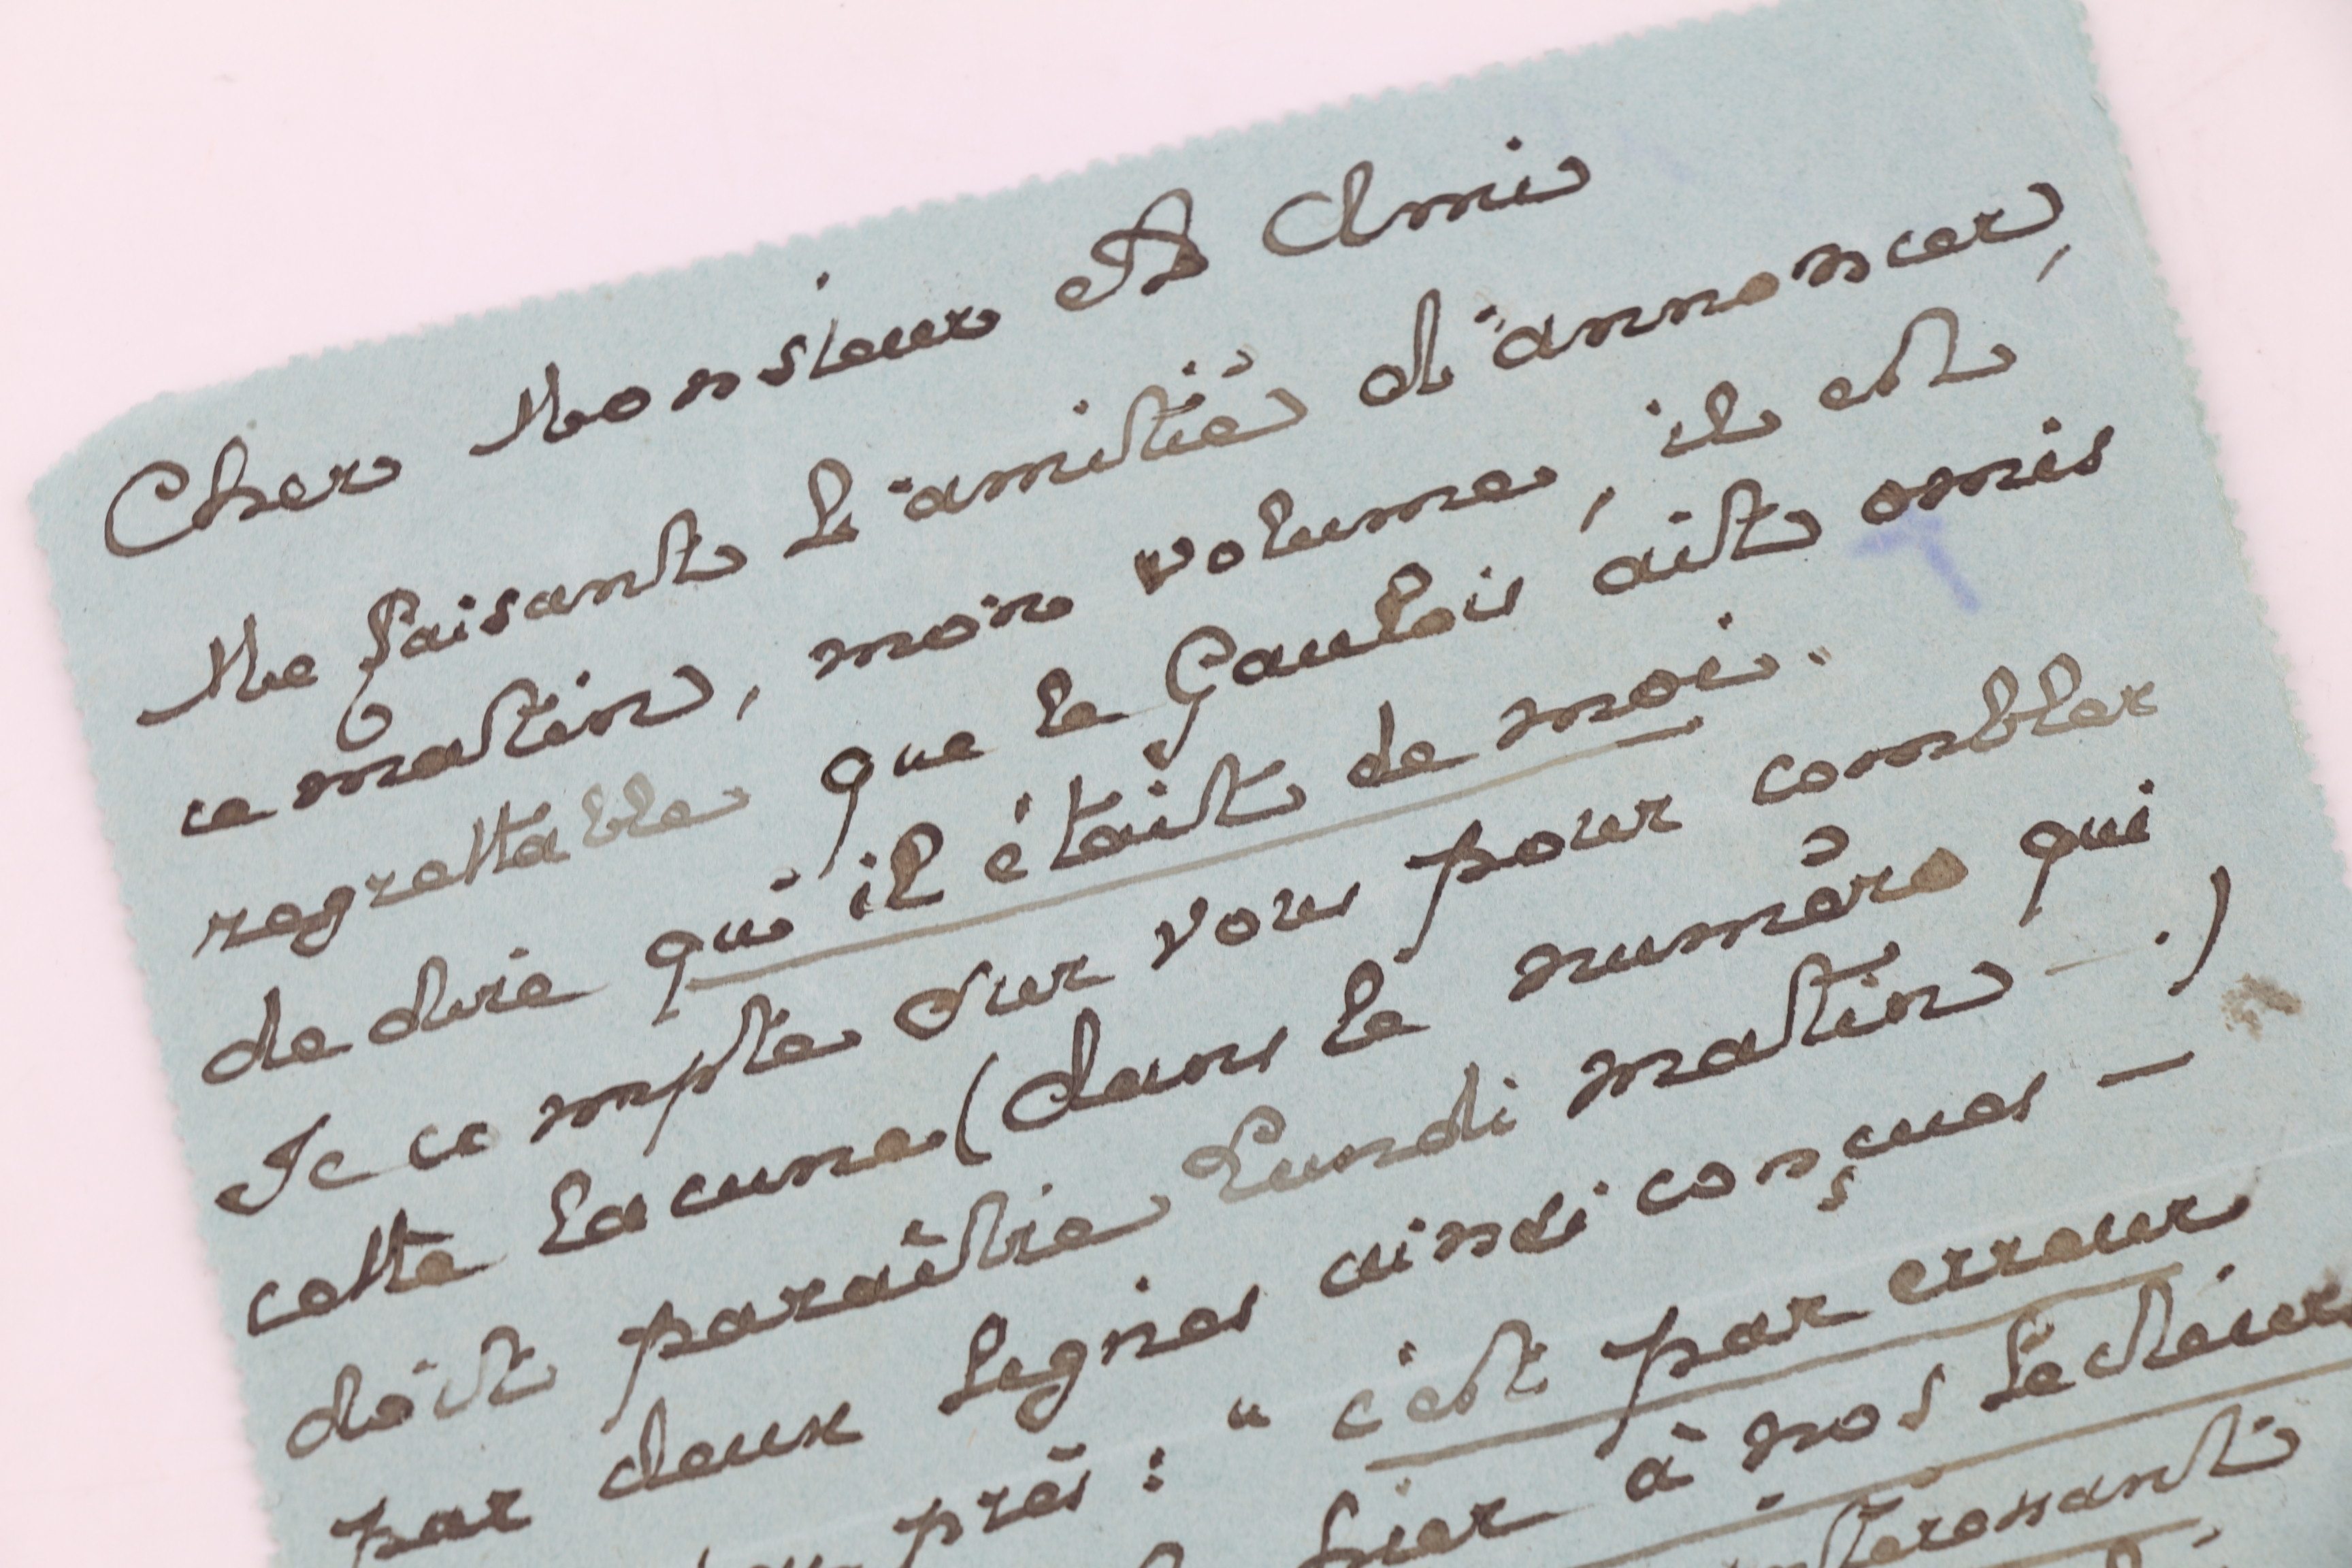 Cher Monsieur Et Ami
Me faisant l'amitié d'annoncer,
ce matin, mon volume, il est
regrettable que le Gaulois ait omis
de dire qu'il était de moi.
Je compte sur vous pour combler
cette lacune (dans le numéro qui
doit paraître Lundi matin — .)
par deux lignes ainsi conçues —
près : " c'est par erreur
hier à nos lecteurs
intéressant